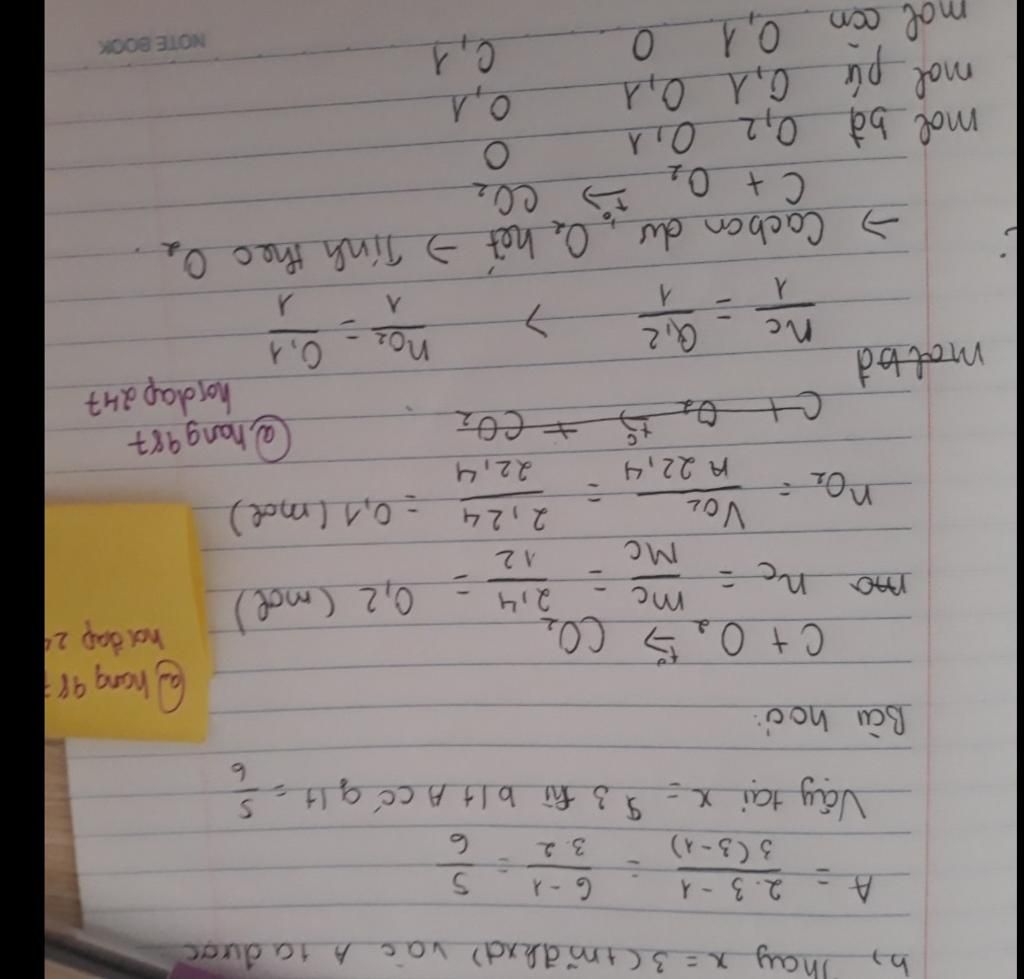 b, Thay x = 3 (tmđkxđ) vào A ta được
A = \frac{2.3-1}{3(3-1)} = \frac{6-1}{3.2} = \frac{5}{6}
Vậy tại x = 3 thì b/t A có g/t = \frac{5}{6}
Bài hoá:
C + O₂ \xrightarrow{t°} CO₂
@hang987
hoidap 24
n_C = \frac{m_C}{M_C} = \frac{2,4}{12} = 0,2 (mol)
n_{O₂} = \frac{V_{O₂}}{22,4} = \frac{2,24}{22,4} = 0,1 (mol)
C + O₂ \xrightarrow{t°} CO₂
@hang987
hoidap247
mol bđ
\frac{n_C}{1} = \frac{0,2}{1} > \frac{n_{O₂}}{1} = \frac{0,1}{1}
→ Cacbon dư, O₂ hết → Tính theo O₂
C + O₂ \xrightarrow{t°} CO₂
mol bđ 0,2 0,1 0
mol pứ 0,1 0,1 0,1
mol còn 0,1 0 0,1
NOTE BOOK